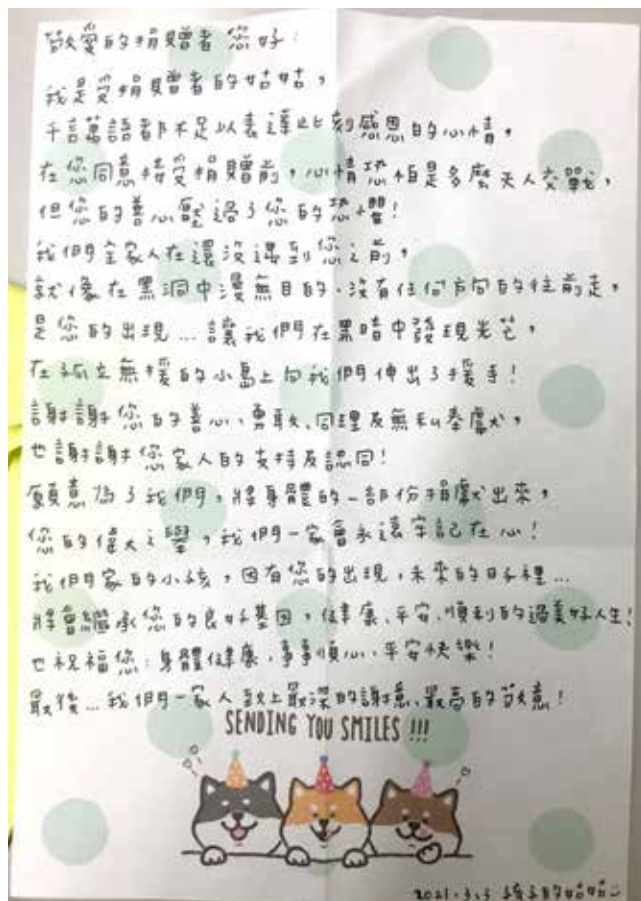 敬愛的捐贈者 您好:
我是受捐贈者的姑姑,
千言萬語都不足以表達此刻感恩的心情,
在您同意接受捐贈前,心情恐怕是多麼天人交戰,
但您的善心戰過了您的恐懼!
我們全家人在還沒遇到您之前,
就像在黑洞中漫無目的、沒有任何方向的往前走,
是您的出現...讓我們在黑暗中發現光芒,
在孤立無援的小島上向我們伸出了援手!
謝謝您的善心、勇敢、同理及無私奉獻,
也謝謝您家人的支持及認同!
願意為了我們,將身體的一部份捐獻出來,
您的偉大之舉,我們一家會永遠牢記在心!
我們家的小孩,因有您的出現,未來的日子裡...
將會繼承您的良好基因,健康、平安、順利的過美好人生!
也祝福您:身體健康、事事順心、平安快樂!
最後...我們一家人致上最深的謝意、最高的敬意!
SENDING YOU SMILES !!!
2021.3.3 孩子的姑姑